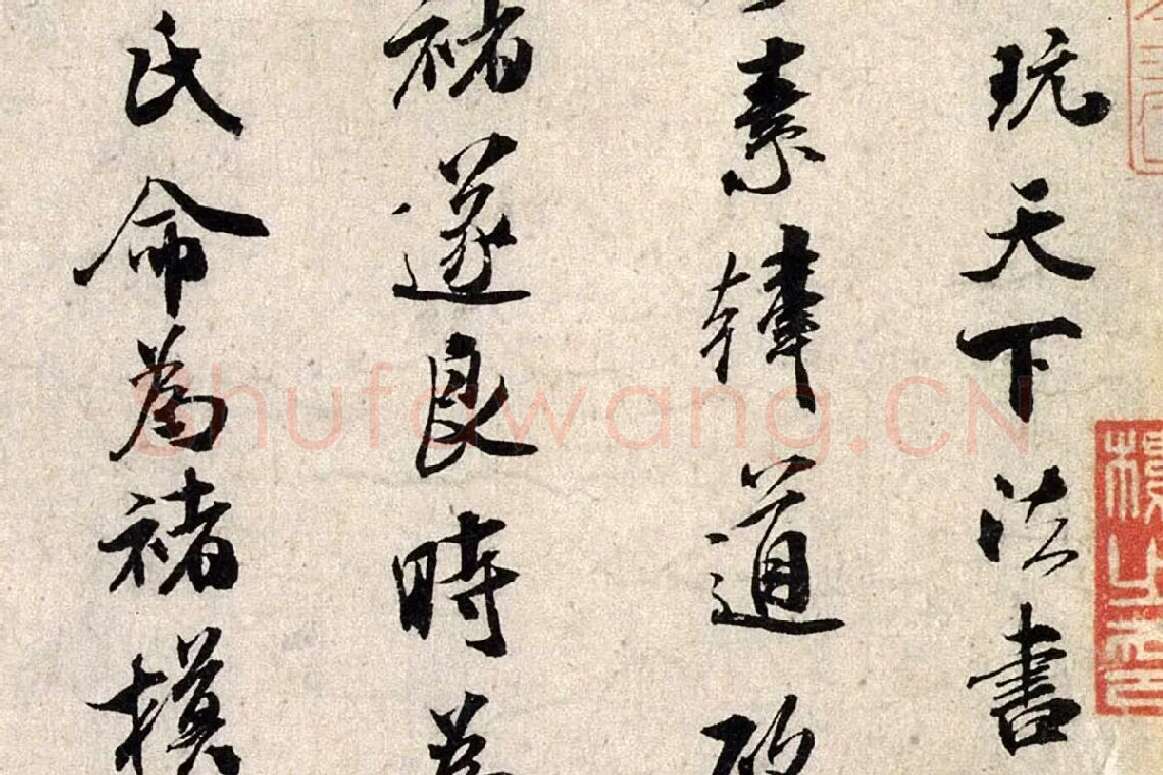 玩天下法書
素韓道
褚遂良時
氏命為褚模
Shufawang.CN